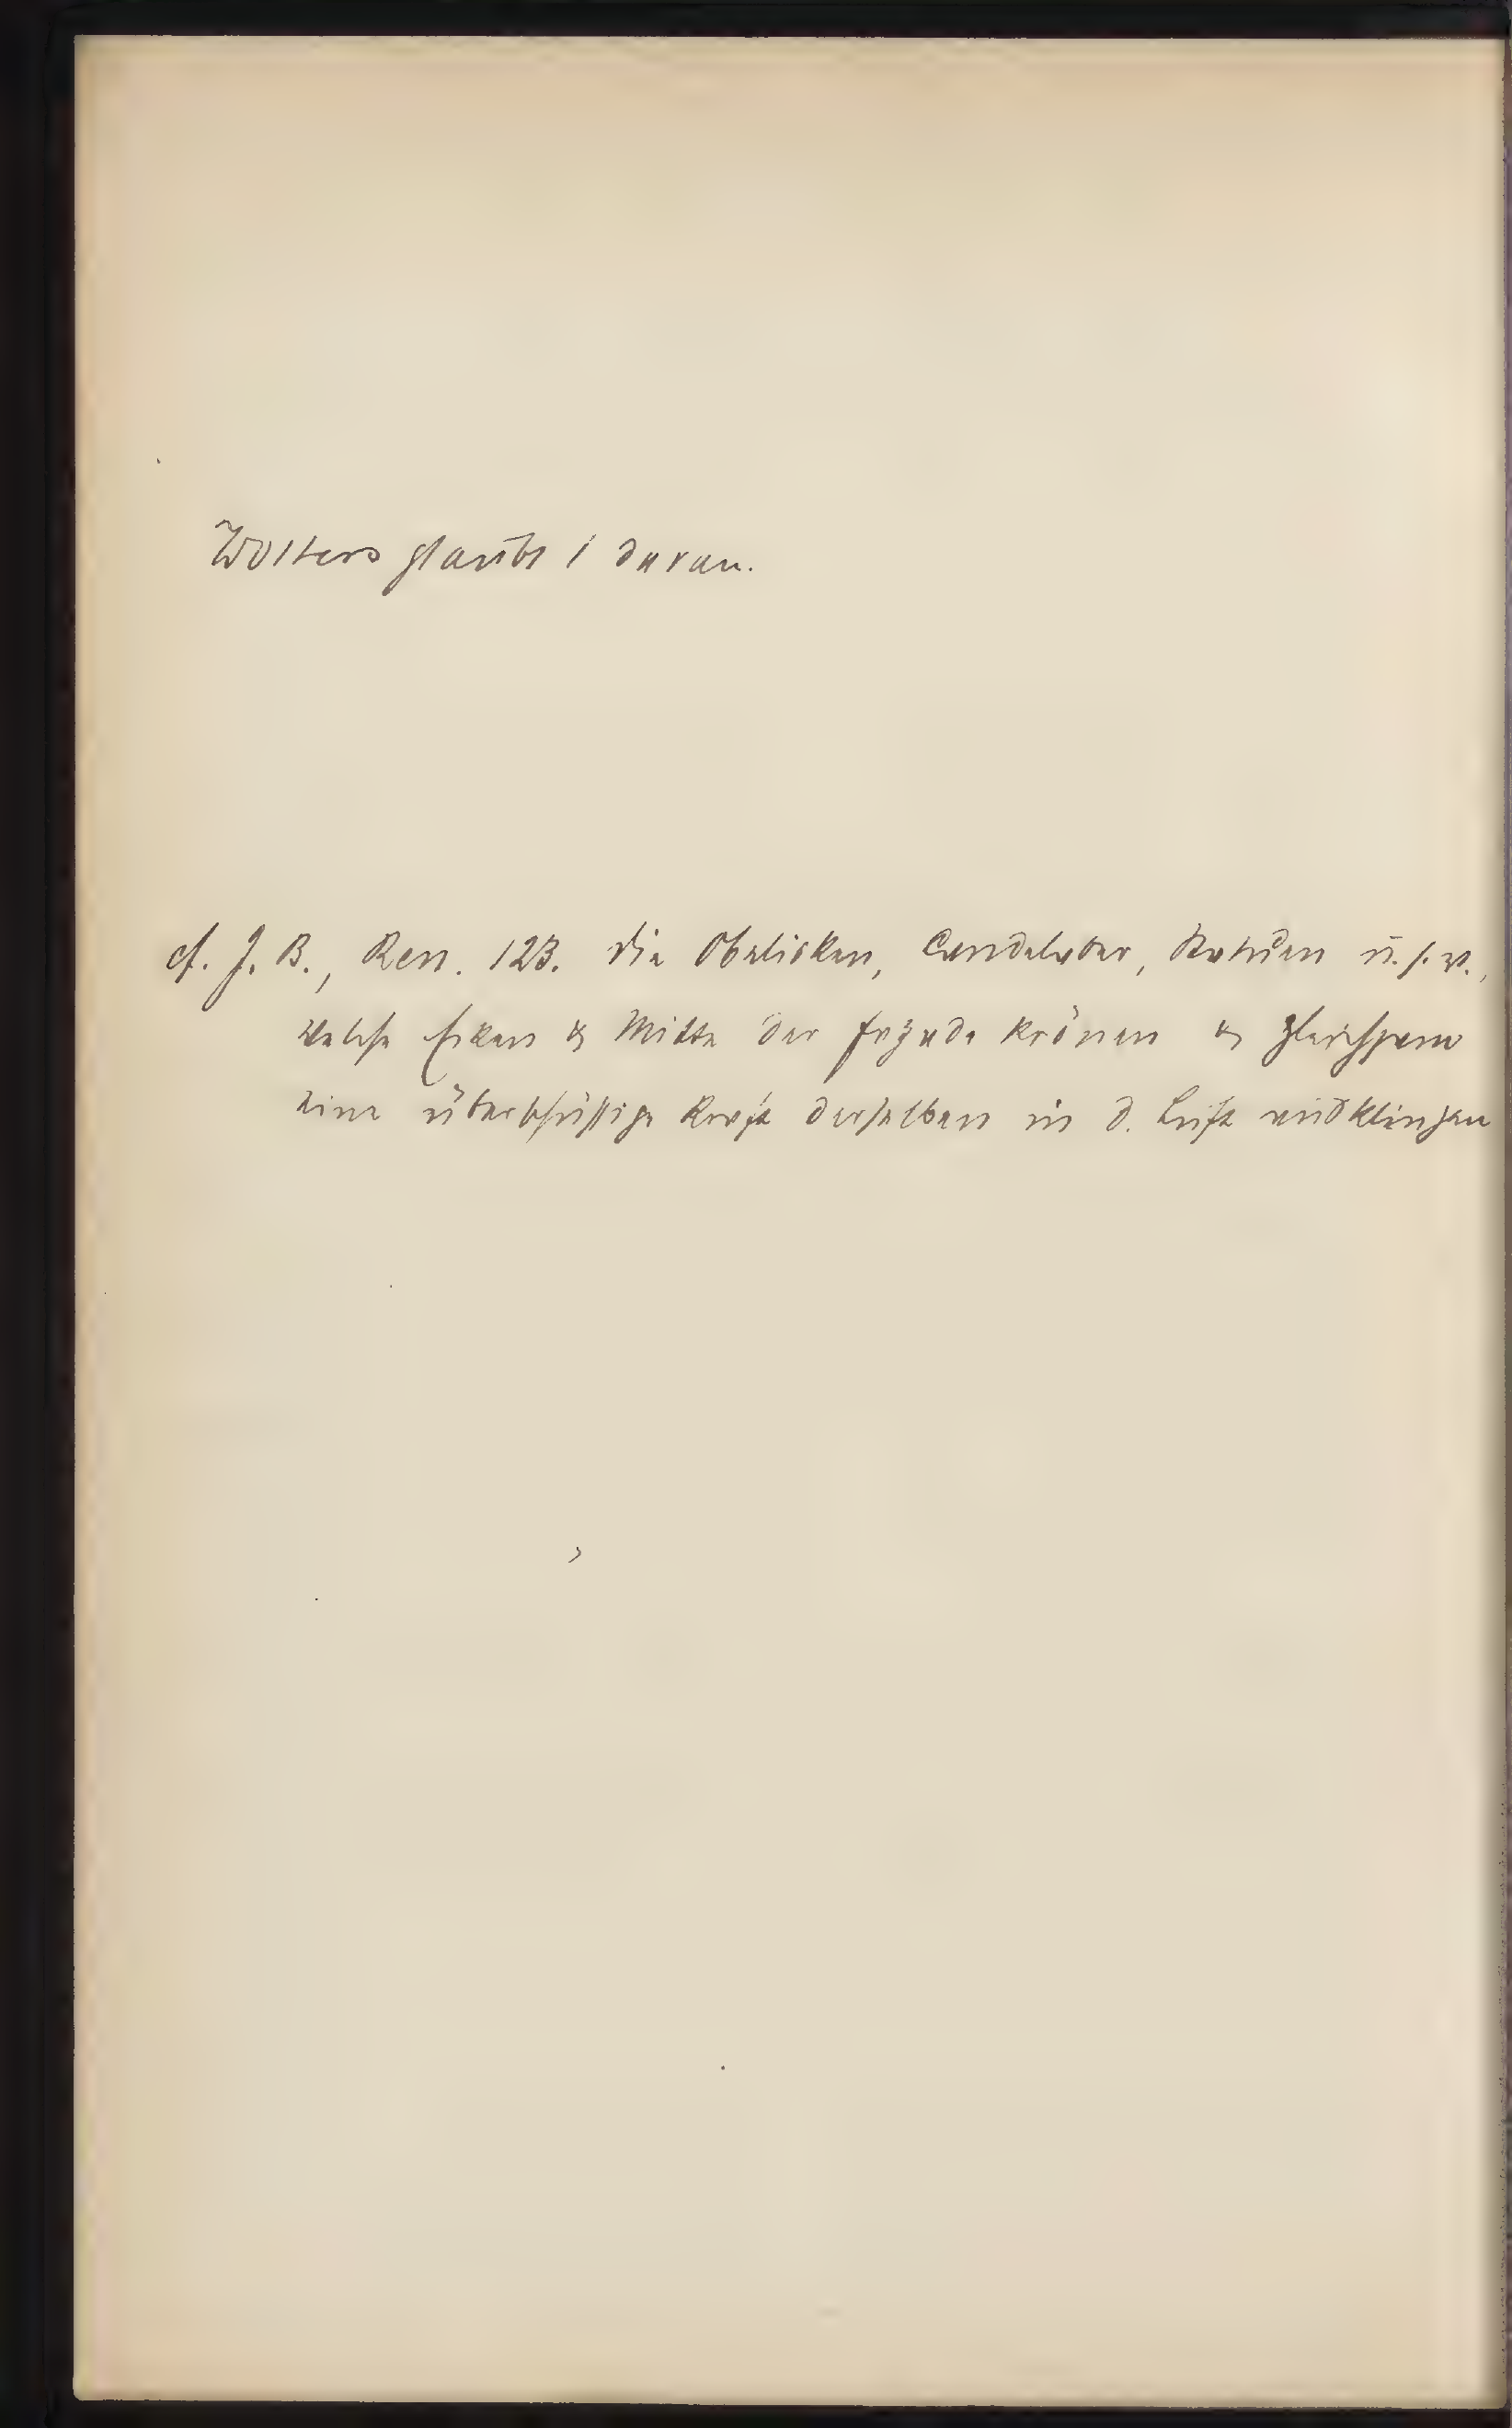 Wolters glaubt / daran.
cf. J. B., Ren. 123. die Obelisken, Candelaber, Statuen u.s.w.,
welche Ecken & Mitte der Façade krönen & gleichsam
eine überschüssige Kraft derselben in d. Luft ausklingen